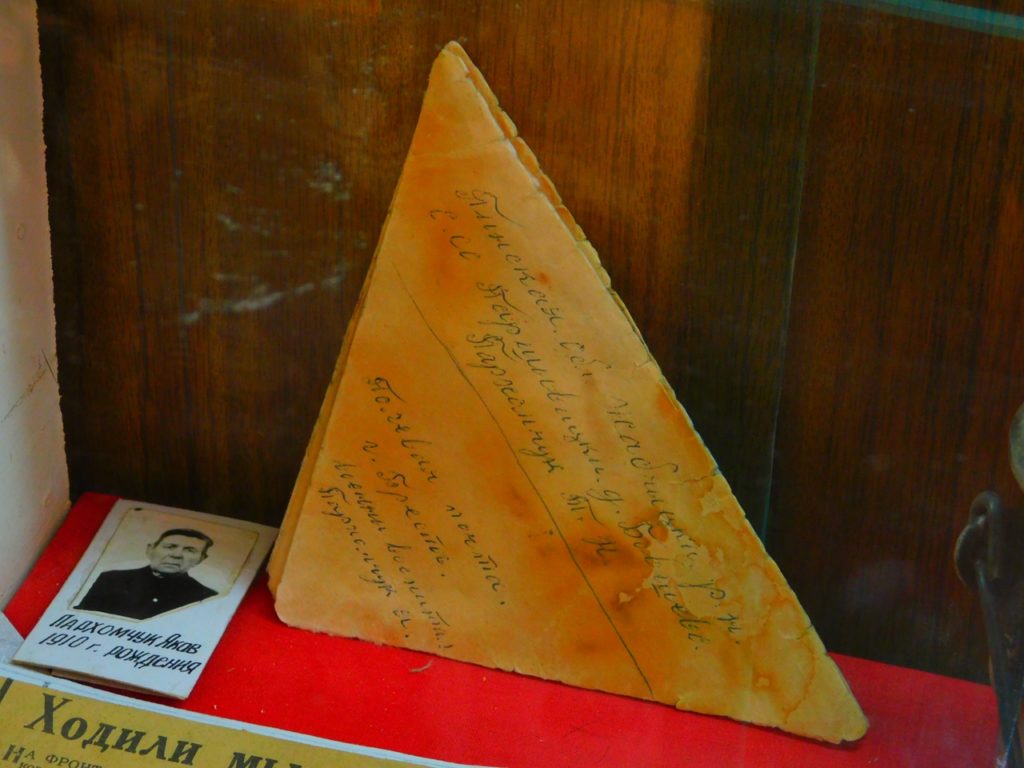 Пинская. обл Жабчицкий. р. н.
С. Сб Паршевицкий. д. Бовшево.
Пархомчук Т. К.
Полевая почта.
г. Брест.
Пархомчук Я.
ПАРХОМЧУК ЯКОВ
1910 г. РОЖДЕНИЯ
Ходили мы
НА ФРОНТ